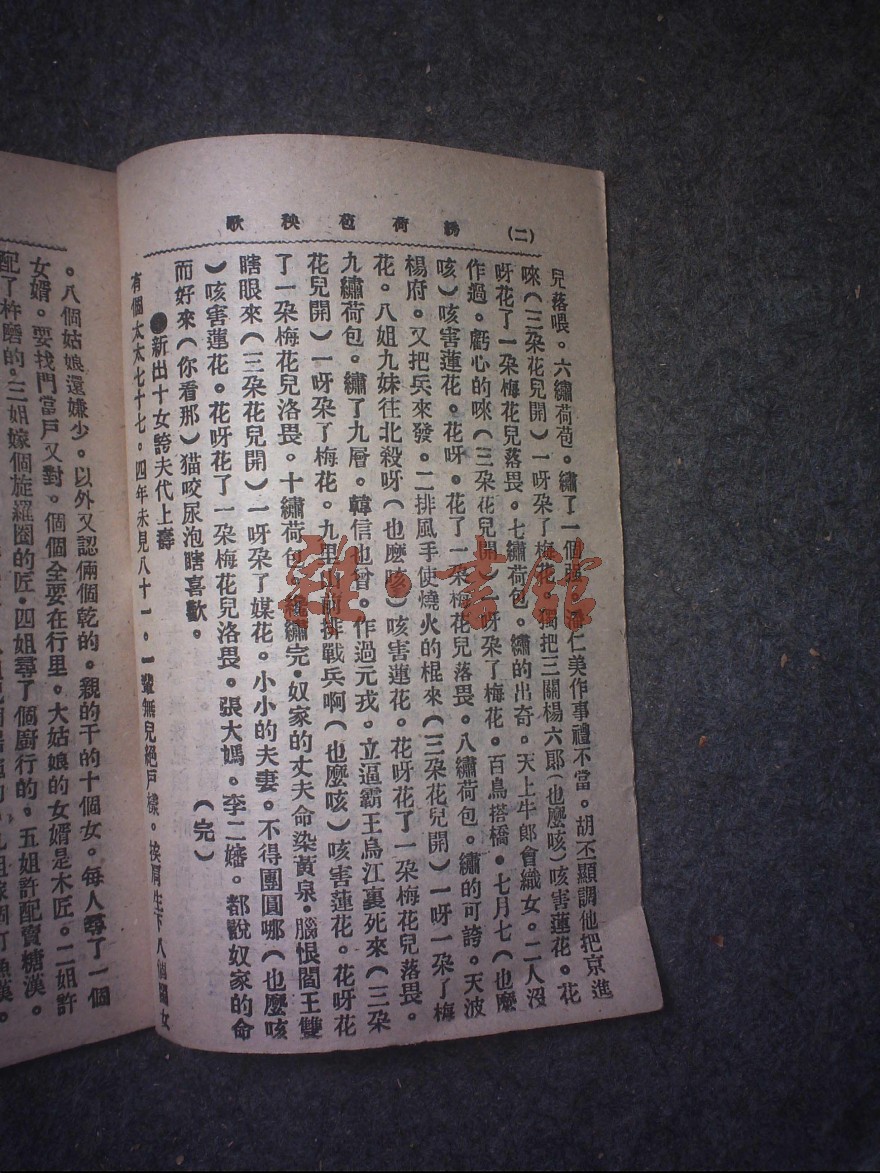 (二) 綉荷苞秧歌
兒落喂。六繡荷苞。繡了一個强。潘仁美作事禮不當。胡丕顯調他把京進
唻(三朶花兒開)一呀朶了梅花。獨把三關楊六郎(也麽咳)咳害蓮花。花
呀花了一朶梅花兒落畏。七繡荷包。繡的出奇。天上牛郎會織女。二人沒
作過。虧心的唻(三朶花兒開)一呀朶了梅花。百鳥搭橋。七月七(也麽
咳)咳害蓮花。花呀。花了一朶梅花兒落畏。八繡荷包。繡的可誇。天波
楊府。又把兵來發。二排風手使燒火的棍來(三朶花兒開)一呀一朶了梅
花。八姐九妹往北殺呀(也麽咳)咳害蓮花。花呀花了一朶梅花兒落畏。
九繡荷包。繡了九層。韓信也曾。作過元戎。立逼霸王烏江裏死來(三朶
花兒開)一呀朶了梅花。九里山前排戰兵啊(也麽咳)咳害蓮花。花呀花
了一朶梅花兒洛畏。十繡荷包。繡完。奴家的丈夫命染黃泉。腦恨閻王雙
瞎眼來(三朶花兒開)一呀朶了媒花。小小的夫妻。不得團圓哪(也麽咳
)咳害蓮花。花呀花了一朶梅花兒洛畏。張大媽。李二嬸。都說奴家的命
而好來(你看那)猫咬尿泡瞎喜歡。(完)
●新出十女誇夫代上壽
有個太太七十七。四年未見八十一。一輩無兒絕戶樣。挨肩生下八個閨女
。八個姑娘還嫌少。以外又認倆個乾的。親的干的十個女。每人尋了一個
女婿。要找門當戶又對。個個全要在行里。大姑娘的女婿是木匠。二姐許
配了杵磨的。三姐嫁個旋羅圈的匠。四姐尋了個廚行的。五姐許配賣糖漢。
雜·書館